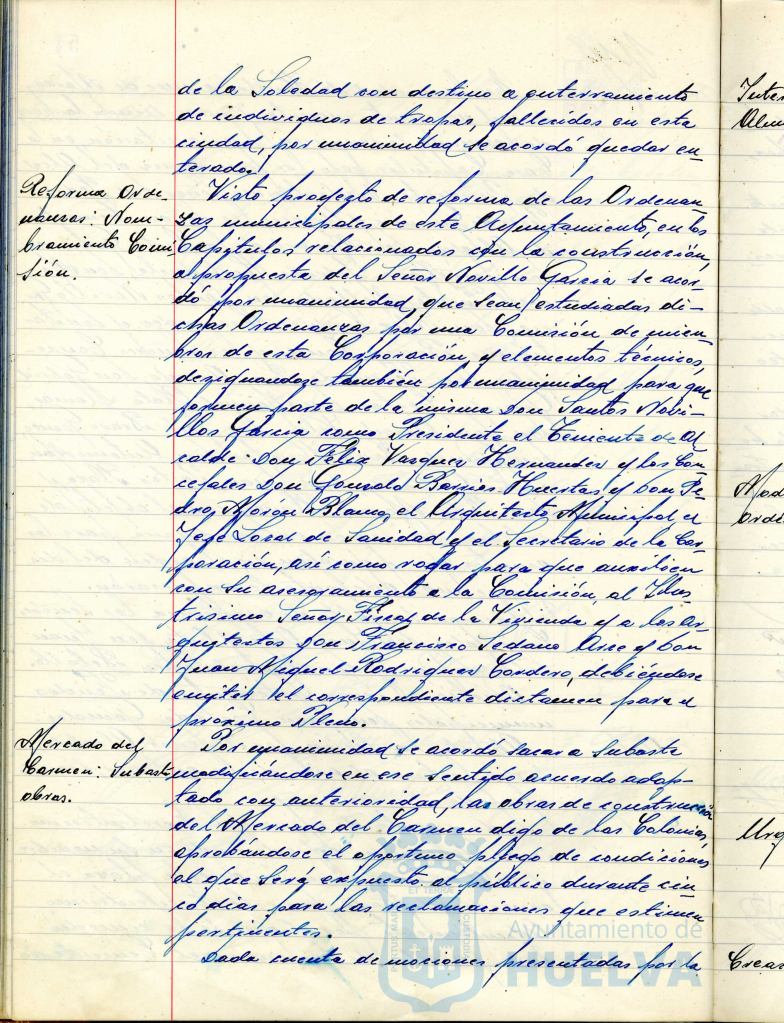 de la Soledad con destino a enterramiento
de individuos de tropas, fallecidos en esta
ciudad, por unanimidad se acordó quedar en-
terado.
Reforma Orde-
nanzas: Nom-
bramiento Comi
sión.
Visto proyecto de reforma de las Ordenan-
zas municipales de este Ayuntamiento, en los
Capítulos relacionados con la construcción,
a propuesta del Señor Novillo Garcia se acor-
dó por unanimidad, que sean estudiadas di-
chas Ordenanzas por una Comisión de miem-
bros de esta Corporación y elementos técnicos,
designandose también por unanimidad para que
formen parte de la misma Don Santos Novi-
llos Garcia como Presidente el Teniente de Al
calde Don Félix Vazquez Hernandez y los Con-
cejales Don Gonzalo Barrios Huertas y Don Pe-
dro Morón Blanco el Arquitecto Municipal el
Jefe Local de Sanidad y el Secretario de la Cor-
poración, así como rogar para que auxilien
con su asesoramiento a la Comisión, al Ilus-
trisimo Señor Fiscal de la Vivienda y a los Ar-
quitectos Don Francisco Sedano Arce y Don
Juan Miguel Rodriguez Cordero, debiéndose
emitir el correspondiente dictamen para el
próximo Pleno.
Mercado del
Carmen: Subasta
obras.
Por unanimidad se acordó sacar a Subasta
modificándose en ese sentido acuerdo adop-
tado con anterioridad, las obras de construcción
del Mercado del Carmen digo de las Colonias,
aprobándose el oportuno pliego de condiciones
el que será expuesto al público durante cin
co dias para las reclamaciones que estimen
pertinentes.
Dada cuenta de mociones presentadas por la
Ayuntamiento de
HUELVA